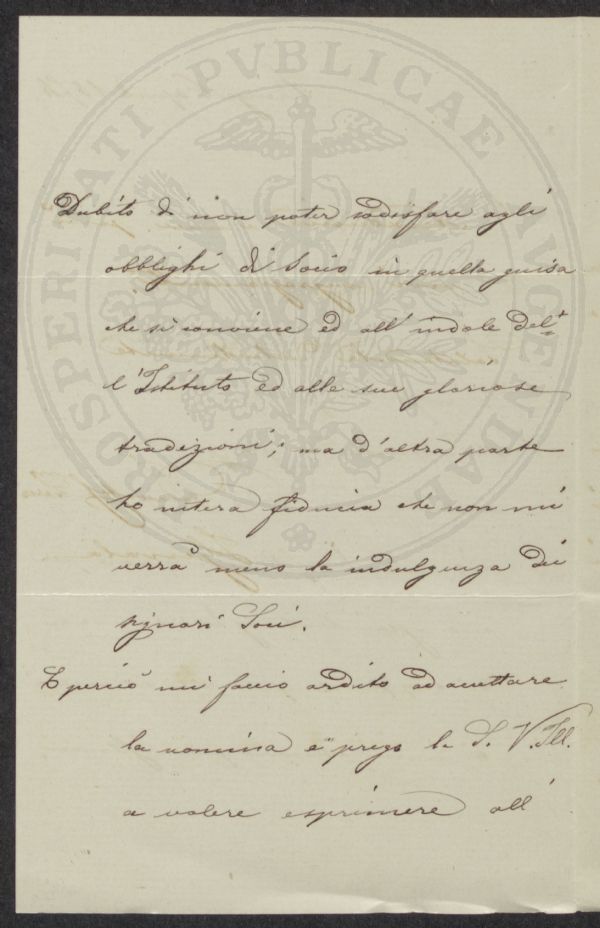 PROSPERITATI PVBLICAE AVGENDAE
Dubito di non poter sodisfare agli
obblighi di Socio in quella guisa
che si conviene ed all' indole del=
l'Istituto ed alle sue gloriose
tradizioni; ma d'altra parte
ho intera fiducia che non mi
verrà meno la indulgenza dei
signori Soci.
E perciò mi faccio ardito ad accettare
la nomina e prego la S. V. Ill.
a volere esprimere all'